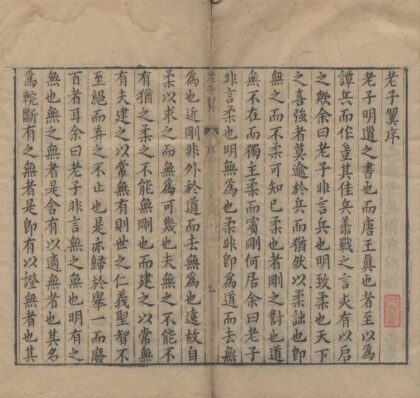 老子翼序
老子明道之書也而唐王真也者至以為
譚兵而作豈其佳兵善戰之言亦有以启
之歟余曰老子非言兵也明致柔也天下
之喜強者莫逾於兵而猶然以柔詘也即
無之而不柔可知已柔也者剛之對也道
無不在而獨主柔而賓剛何居余曰老子
非言柔也明無為也柔非即為道而去無
老子翼 序
為也近剛非外於道而去無為也遠故自
柔以求之而無為可幾也夫無之不能不
有猶之柔之不能無剛也而建之以常無
有夫建之以常無有則世之仁義聖智不
至絕而弃之不止也是亦歸於舉一而廢
百者耳余曰老子非言無之無也明有之
無也無之無者是舍有以適無者也其名
為輐斷有之無者是即有以證無者也其